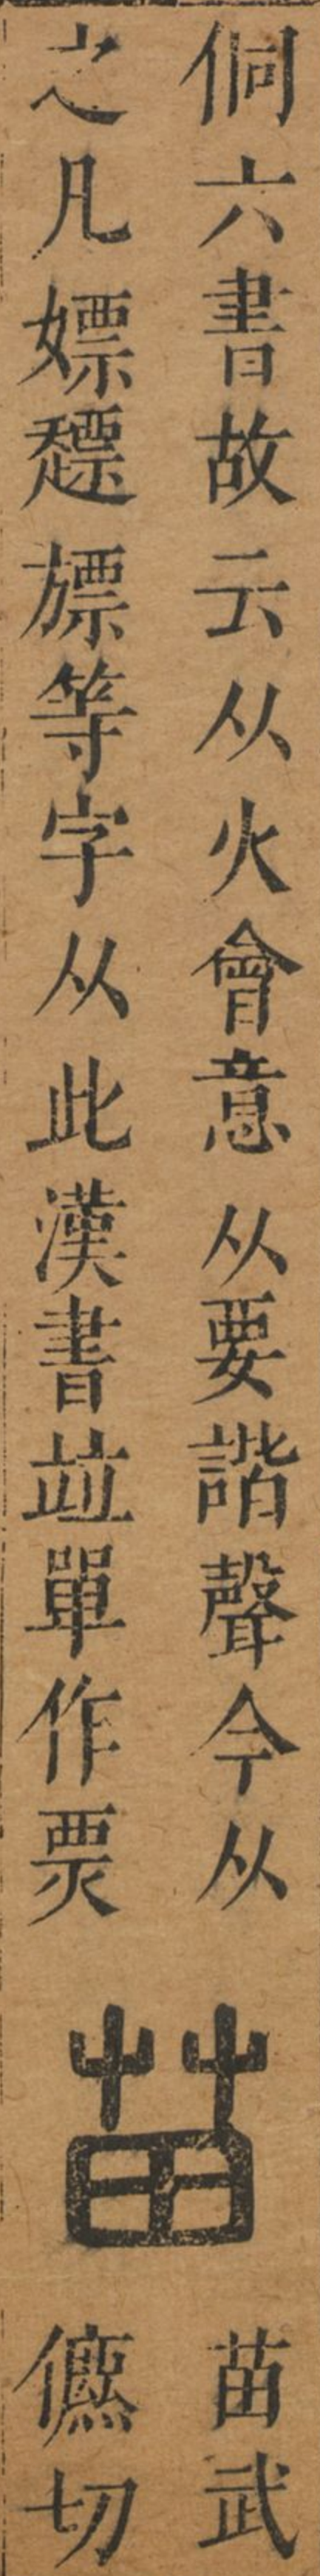 侗六書故云从火會意从要諧聲今从
之凡嫖𧝓旚等字从此漢書竝單作票
苗
苗武
儦切